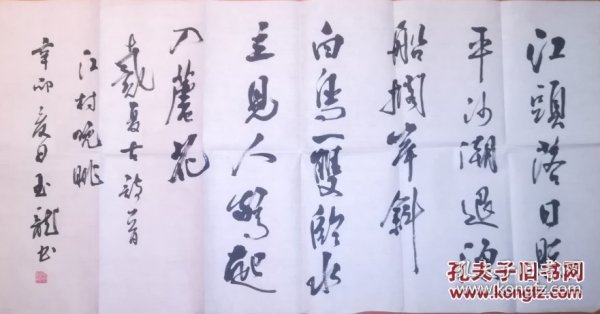 江頭落日照
平沙潮退漁
船擱岸斜
白鳥一雙臨水
立見人驚起
入蘆花
戴复古詩一首
江村晚眺
辛卯夏日玉龍书
孔夫子旧书网
www.kongfz.com